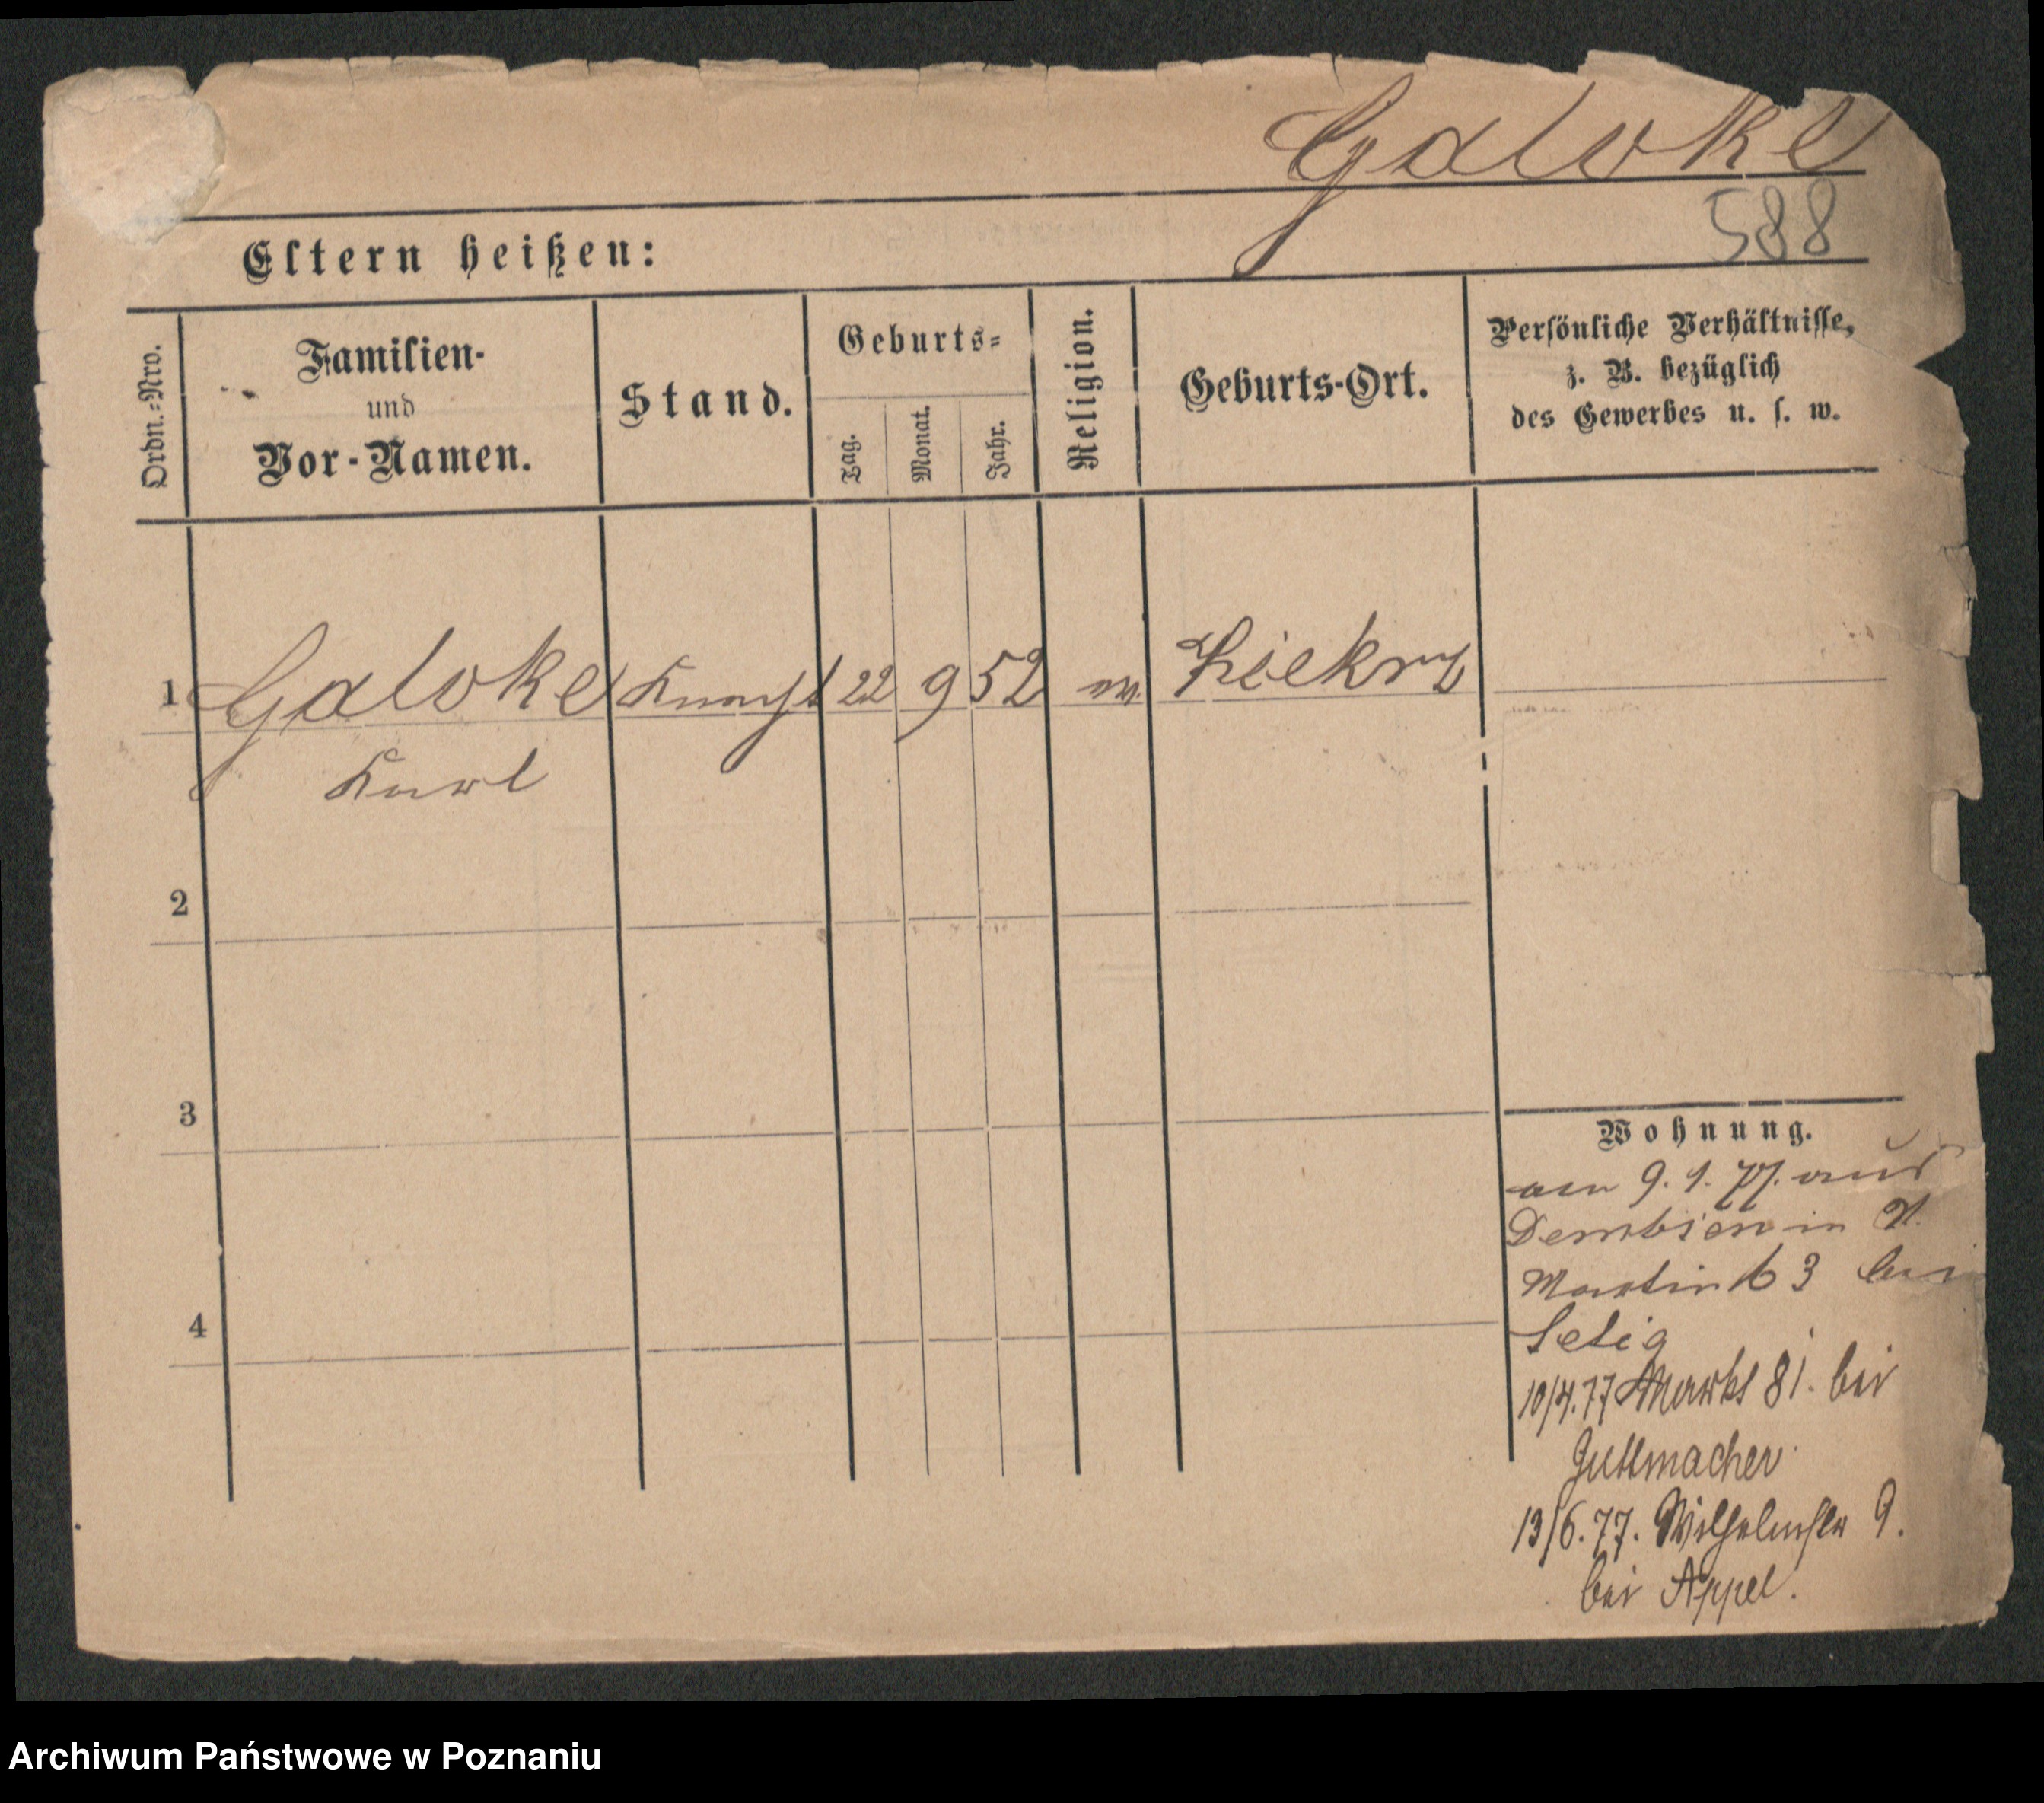 Galoke
588
Eltern heißen:
Ordn.=Nro.
Familien-
und
Vor-Namen.
Stand.
Geburts=
Tag.
Monat.
Jahr.
Religion.
Geburts-Ort.
Persönliche Verhältnisse,
z. B. bezüglich
des Gewerbes u. s. w.
1 Galoke Knecht 22 9 52 ev. Kiekrz
Karl
2
3
4
Wohnung.
am 9. 1. 77. aus
Dembsen in St.
Martin 63 bei
Selig
10/4.77 Markt 81. bei
Guttmacher.
13/6. 77. Wilhelmstr 9.
bei Appel.
Archiwum Państwowe w Poznaniu